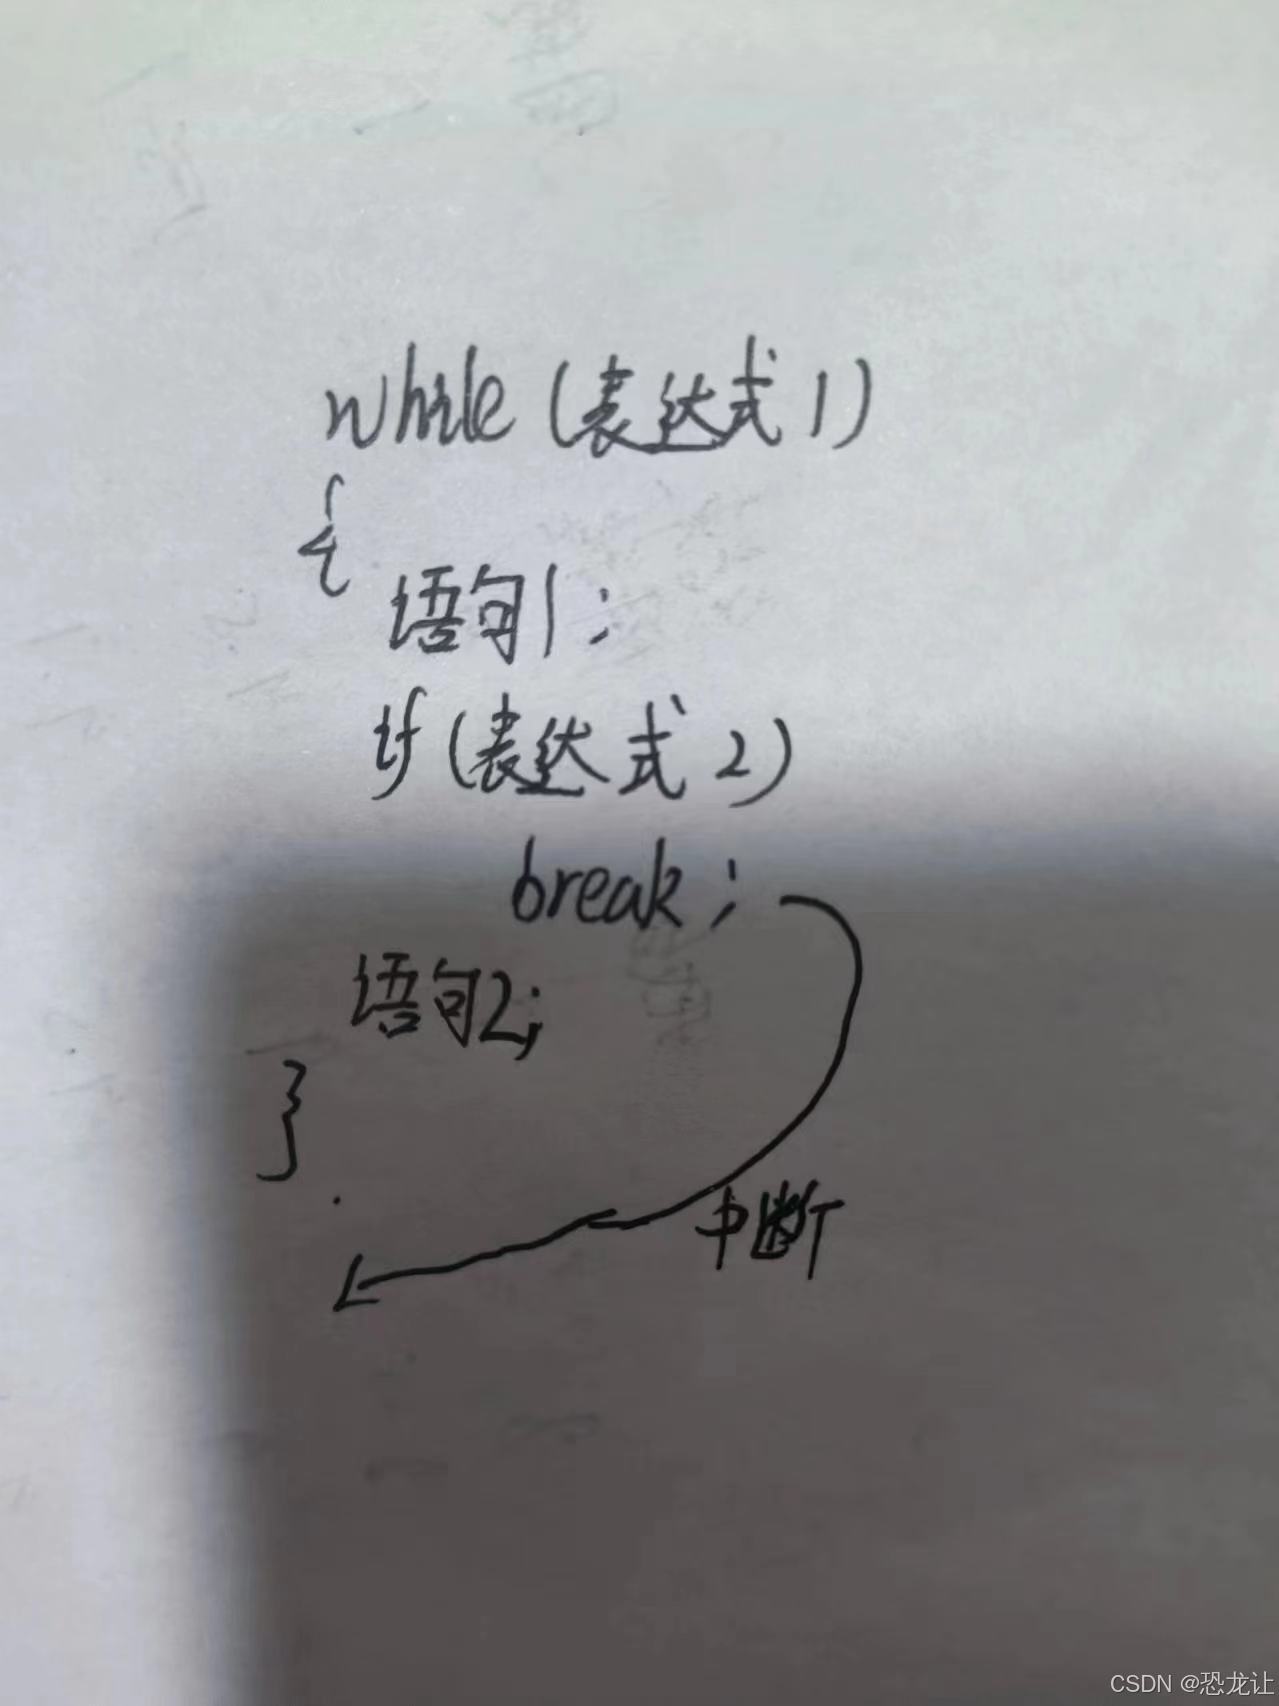 while (表达式1)
{
语句1;
if (表达式2)
break;
语句2;
}
中断
CSDN @恐龙让